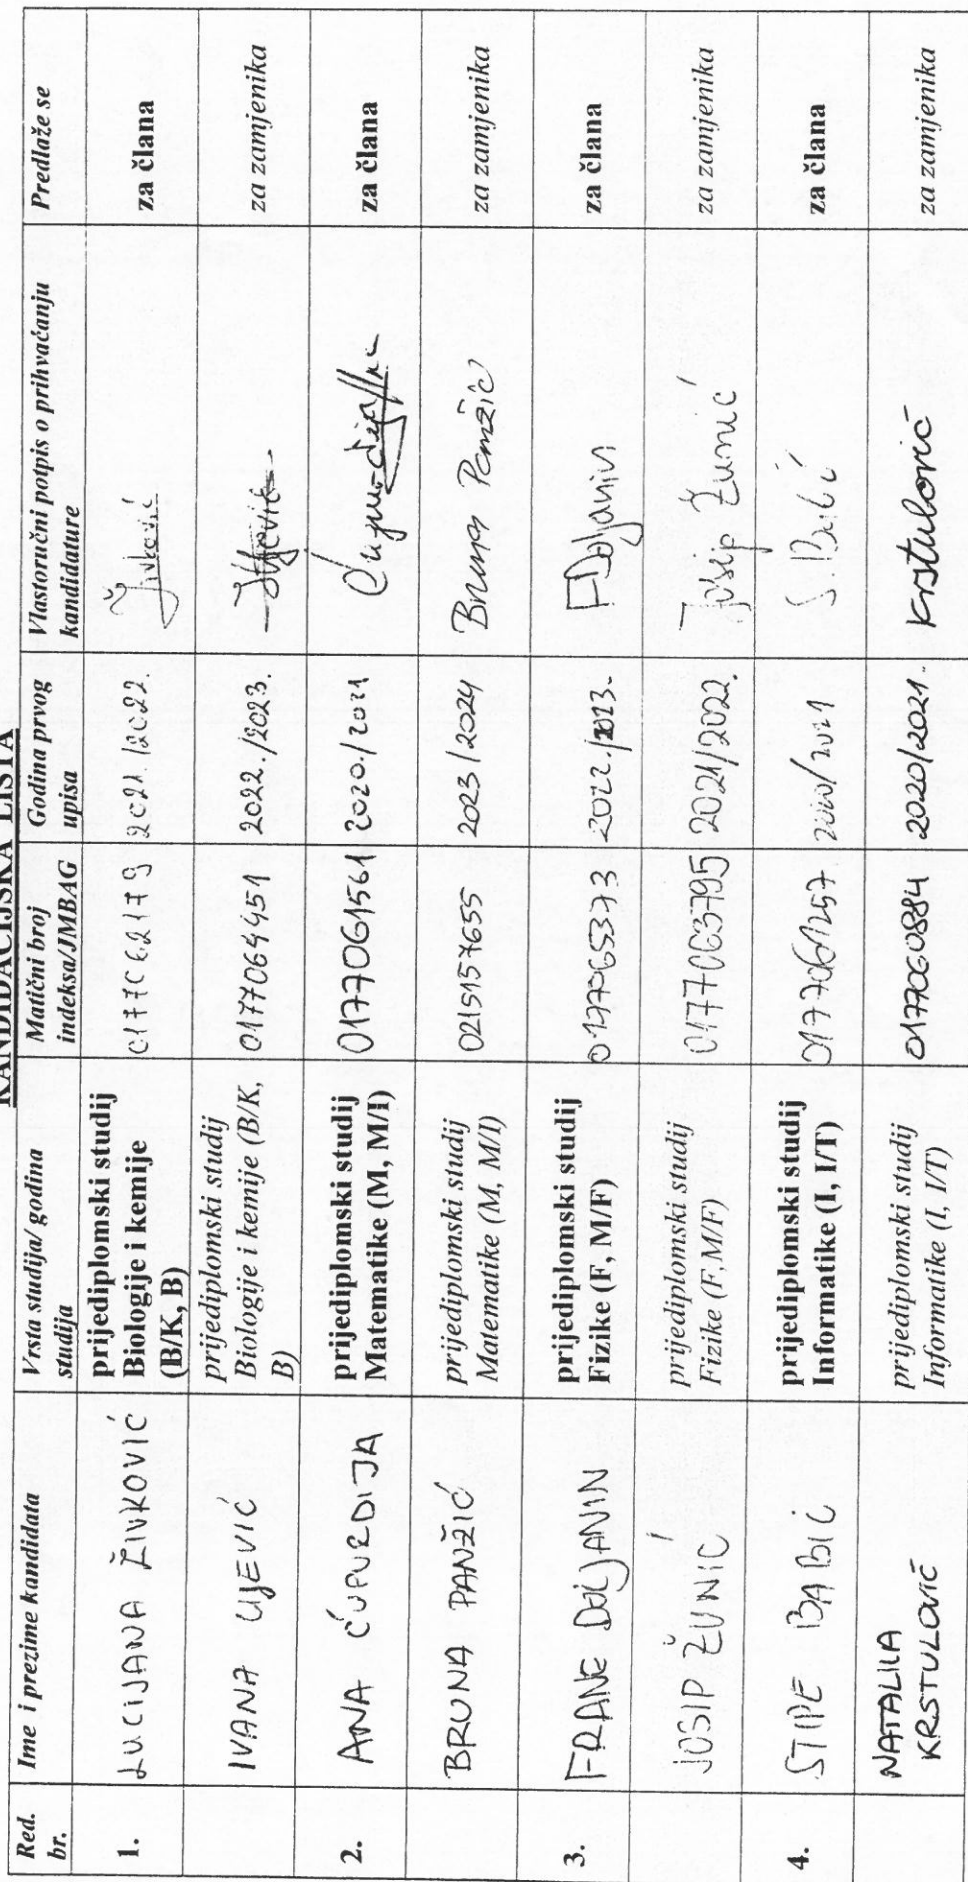 KANDIDACIJSKA LISTA
Red. br.
Ime i prezime kandidata
Vrsta studija/ godina studija
Matični broj indeksa/JMBAG
Godina prvog upisa
Vlastoručni potpis o prihvaćanju kandidature
Predlaže se
1.
LUCIJANA ŽIVKOVIĆ
prijediplomski studij
Biologije i kemije
(B/K, B)
0177062179
2021./2022.
Živković
za člana
IVANA UJEVIĆ
prijediplomski studij
Biologije i kemije (B/K,
B)
0177064451
2022./2023.
za zamjenika
2.
ANA ĆUPURDIJA
prijediplomski studij
Matematike (M, M/I)
0177061561
2020./2021
za člana
BRUNA PANŽIĆ
prijediplomski studij
Matematike (M, M/I)
0215157655
2023/2024
Bruna Panžić
za zamjenika
3.
FRANE DOLJANIN
prijediplomski studij
Fizike (F, M/F)
0177065373
2022./2023.
FDoljanin
za člana
JOSIP ŽUNIĆ
prijediplomski studij
Fizike (F,M/F)
0177063795
2021/2022.
Josip Žunić
za zamjenika
4.
STIPE BABIĆ
prijediplomski studij
Informatike (I, I/T)
0177061257
2020/2021
S. Babić
za člana
NATALIJA
KRSTULOVIĆ
prijediplomski studij
Informatike (I, I/T)
0177060884
2020/2021.
Krstulović
za zamjenika